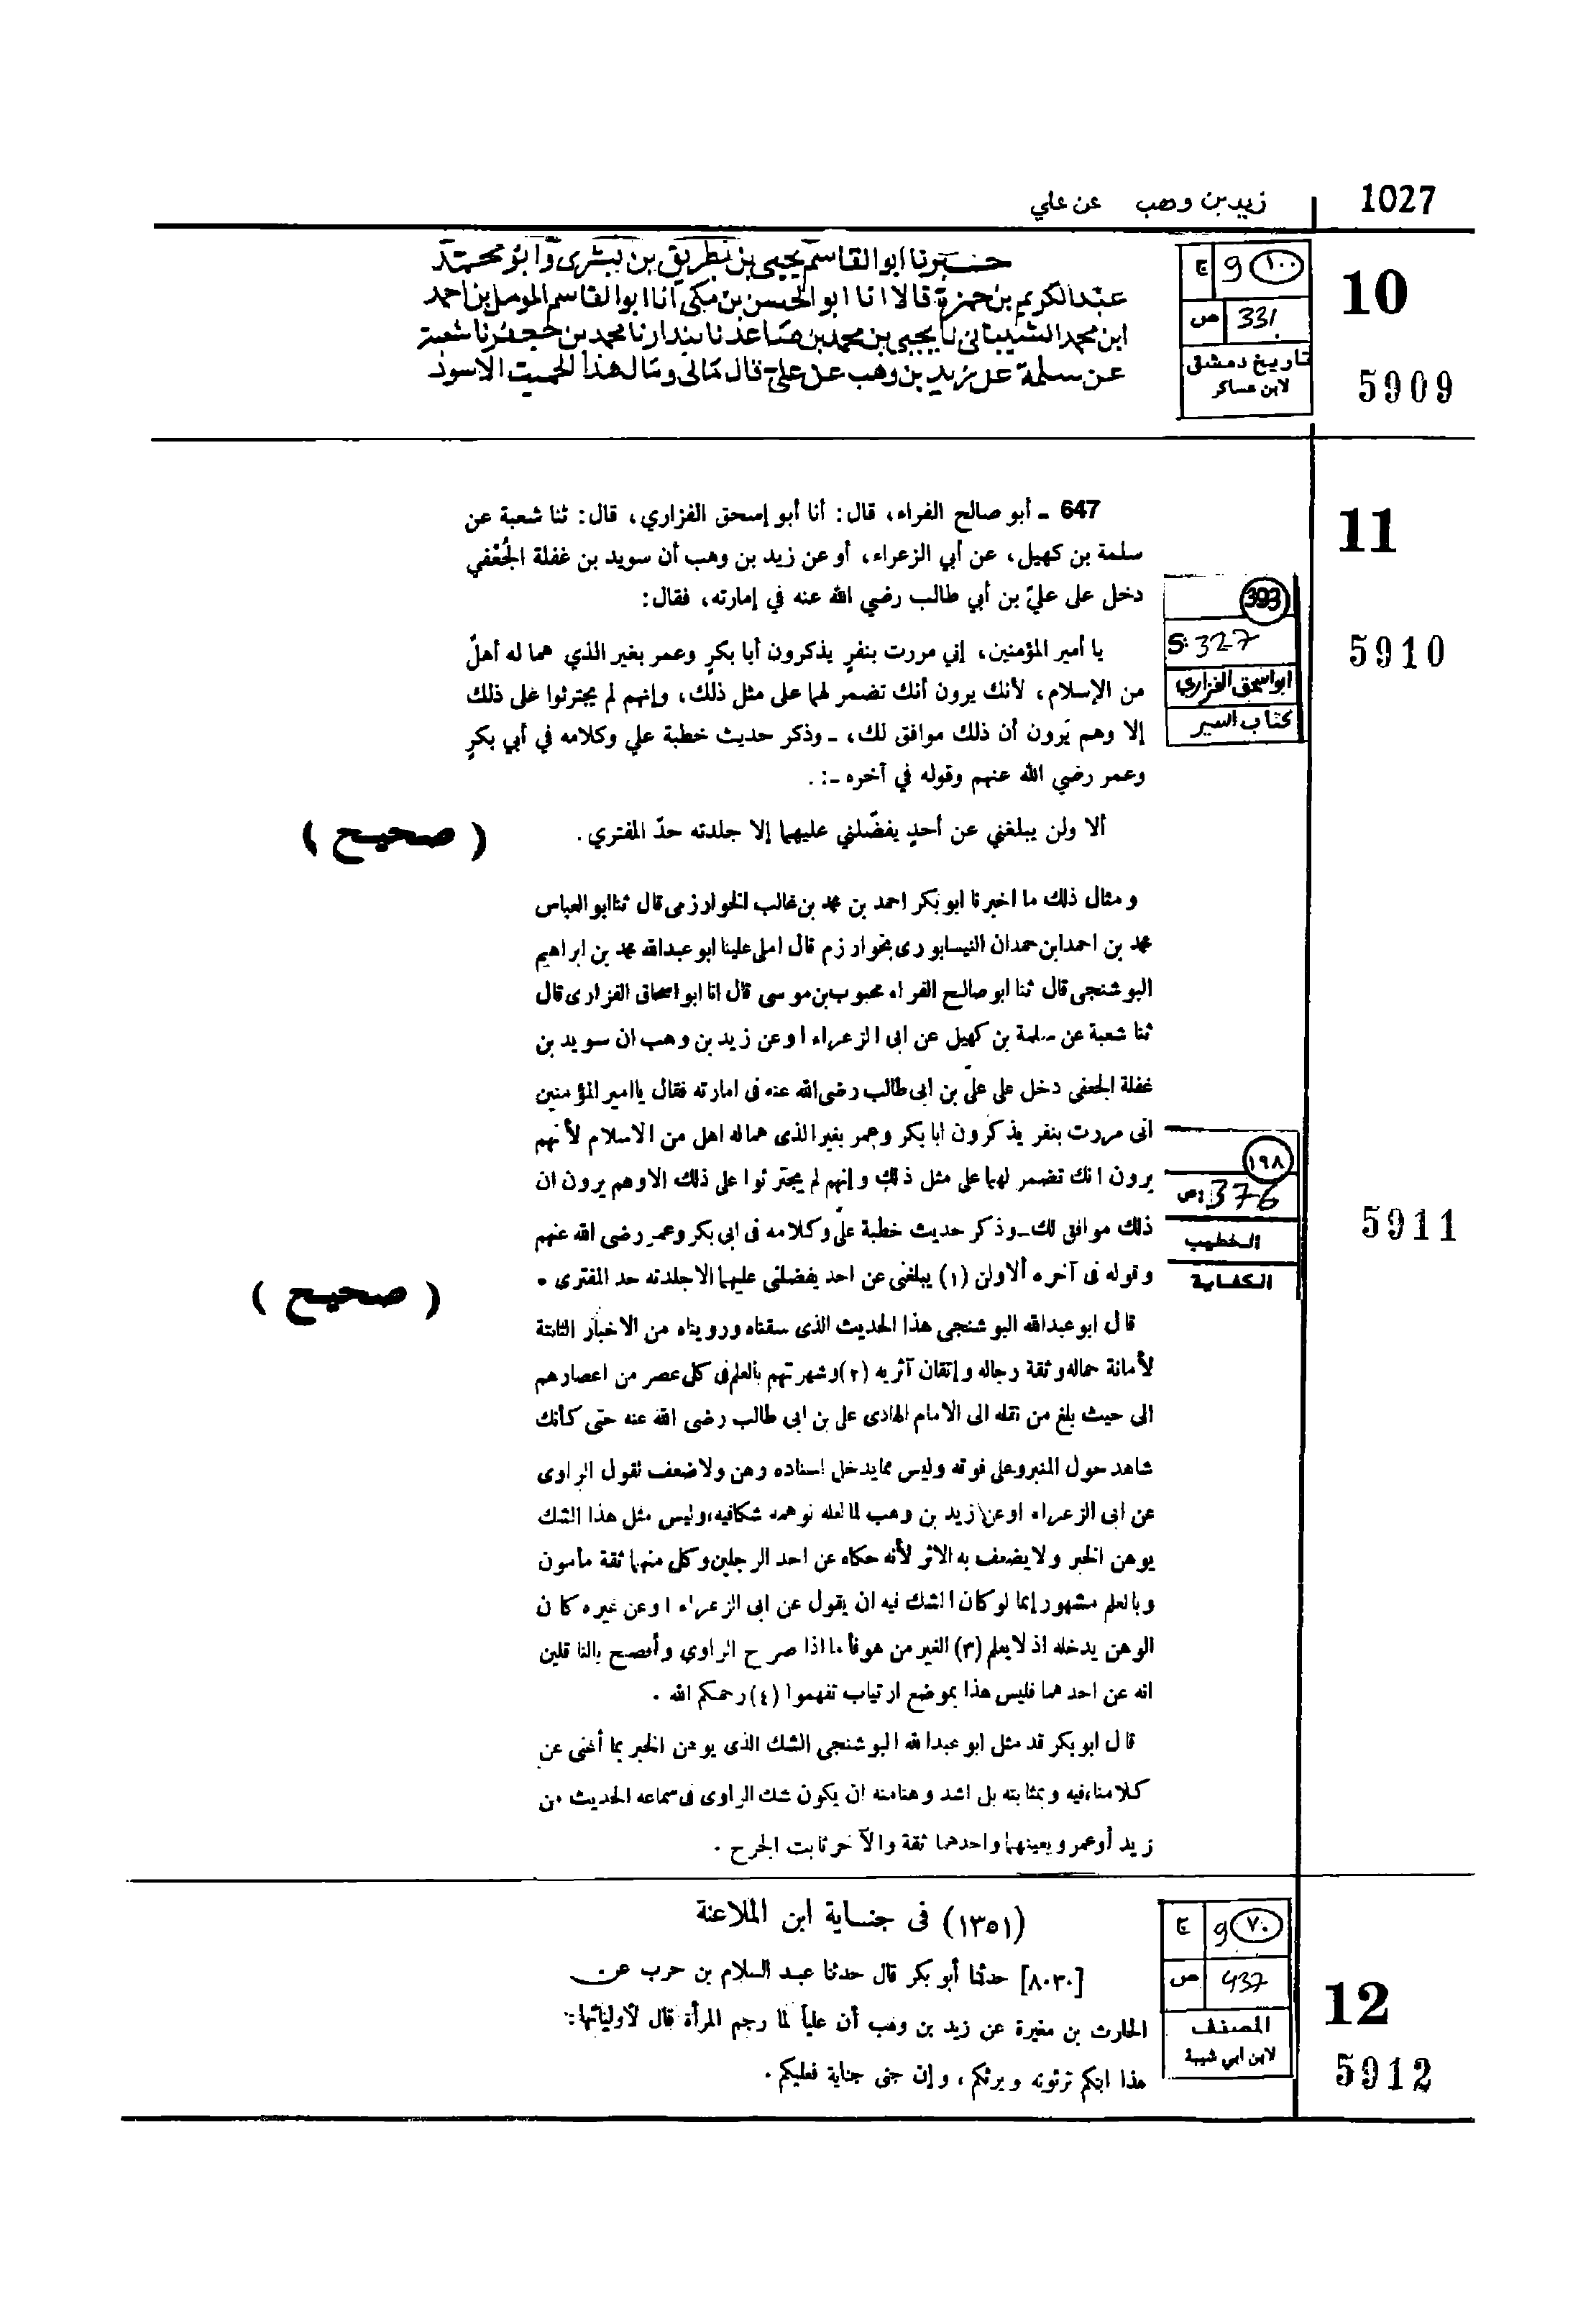 1027 زيد بن وهب عن علي
10
١٠٠ و ج
331 ص
تاريخ دمشق
لابن عساكر
5909
خبرنا ابو القاسم يحيى بن بطريق بن بشرى وابو محمد
عبد الكريم بن حمزة قالا انا ابو الحسن بن مكي انا ابو القاسم المومل بن احمد
ابن محمد الشيباني نا يحيى بن محمد بن صاعد نا بندار نا محمد بن جعفر نا شعبة
عن سلمة عن زيد بن وهب عن علي قال مالي ومال هذا الحميت الاسود
11
393
S: 327
ابو اسحق الفزاري
كتاب السير
5910
647 ـ أبو صالح الفراء، قال: أنا أبو إسحق الفزاري، قال: ثنا شعبة عن
سلمة بن كهيل، عن أبي الزعراء، أو عن زيد بن وهب أن سويد بن غفلة الجُعْفي
دخل على عليّ بن أبي طالب رضي الله عنه في إمارته، فقال:
يا أمير المؤمنين، إني مررت بنفرٍ يذكرون أبا بكرٍ وعمر بغير الذي هما له أهلٌ
من الإسلام، لأنك يرون أنك تضمر لهما على مثل ذلك، وإنهم لم يجترئوا على ذلك
إلا وهم يَرون أن ذلك موافق لك، ـ وذكر حديث خطبة علي وكلامه في أبي بكرٍ
وعمر رضي الله عنهم وقوله في آخره ـ: .
ألا ولن يبلغني عن أحدٍ يفضّلني عليهما إلا جلدته حدّ المفتري .
( صحيح )
و مثال ذلك ما اخبرنا ابو بكر احمد بن محمد بن غالب الخوارزمى قال ثنا ابو العباس
محمد بن احمد ابن حمدان النيسابورى بخوارزم قال املى علينا ابو عبدالله محمد بن ابراهيم
البوشنجى قال ثنا ابو صالح الفراء محبوب بن موسى قال انا ابو اسحاق الفزارى قال
ثنا شعبة عن سلمة بن كهيل عن ابى الزعراء او عن زيد بن وهب ان سويد بن
غفلة الجعفى دخل على علىّ بن ابى طالب رضى الله عنه فى امارته فقال يا امير المؤمنين
انى مررت بنفر يذكرون ابا بكر وعمر بغير الذى هما له اهل من الاسلام لأنهم
يرون انك تضمر لهما على مثل ذلك وإنهم لم يجترئوا على ذلك الا وهم يرون ان
ذلك موافق لك ـ وذكر حديث خطبة علىّ وكلامه فى ابى بكر وعمر رضى الله عنهم
و قوله فى آخره ألا ولن (١) يبلغنى عن احد يفضلنى عليهما الا جلدته حد المفترى •
( صحيح )
١٩٨
ص: 376
الخطيب
الكفاية
5911
قال ابو عبدالله البوشنجى هذا الحديث الذى سقناه ورويناه من الاخبار الثابتة
لأمانة حماله وثقة رجاله وإتقان آثريه (٢) وشهرتهم بالعلم فى كل عصر من اعصارهم
الى حيث بلغ من نقله الى الامام الهادى على بن ابى طالب رضى الله عنه حتى كأنك
شاهد حول المنبر وعلى فوقه وليس مما يدخل اسناده وهن ولا ضعف لقول الراوى
عن ابى الزعراء او عن زيد بن وهب لما لعله توهمه شكا فيه، وليس مثل هذا الشك
يوهن الخبر ولا يضعف به الاثر لأنه حكاه عن احد الرجلين وكل منهما ثقة مأمون
وبالعلم مشهور إنما لو كان الشك فيه ان يقول عن ابى الزعراء او عن غيره كان
الوهن يدخله اذ لا يعلم (٣) الغير من هو فأما اذا صرح الراوي وأفصح بالناقلين
انه عن احدهما فليس هذا بموضع ارتياب تفهموا (٤) رحمكم الله .
قال ابو بكر قد مثل ابو عبدالله البوشنجى الشك الذى يوهن الخبر بما أغنى عن
كلامنا، فيه وبمثابته بل اشد وهنا منه ان يكون شك الراوى فى سماعه الحديث من
زيد أو عمرو بعينهما واحدهما ثقة والآخر ثابت الجرح .
12
٧٠ و ج
437 ص
المصنف
لابن ابي شيبة
5912
(١٣٥١) فى جنساية ابن الملاعنة
[٨٠٣٠] حدثنا أبو بكر قال حدثنا عبد السلام بن حرب عن
الحارث بن مغيرة عن زيد بن وهب أن علياً لما رجم المرأة قال لأوليائها:
هذا ابنكم ترثونه ويرثكم ، وإن جنى جناية فعليكم .